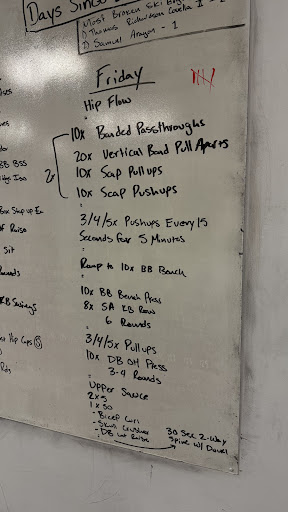 Days Since
Most Broken Ski
1) Thomas Richardson
2) Samuel Aragon - 1
Friday
Hip Flow
10x Banded Passthroughs
20x Vertical Band Pull Aparts
2x
10x Scap Pullups
10x Scap Pushups
3/4/5x Pushups Every 15
Seconds for 5 Minutes
Ramp to 10x BB Bench
10x BB Bench Press
8x SA KB Row
6 Rounds
3/4/5x Pullups
10x DB OH Press
3-4 Rounds
Upper Sauce
2x25
1x50
- Bicep Curl
- Skull Crusher
- DB Lat Raise
30 Sec 2-Way
Spine w/ Dowel
BB BSS
Box Step up Ecc
Raise
Sit
KB Swings
Hip Caps